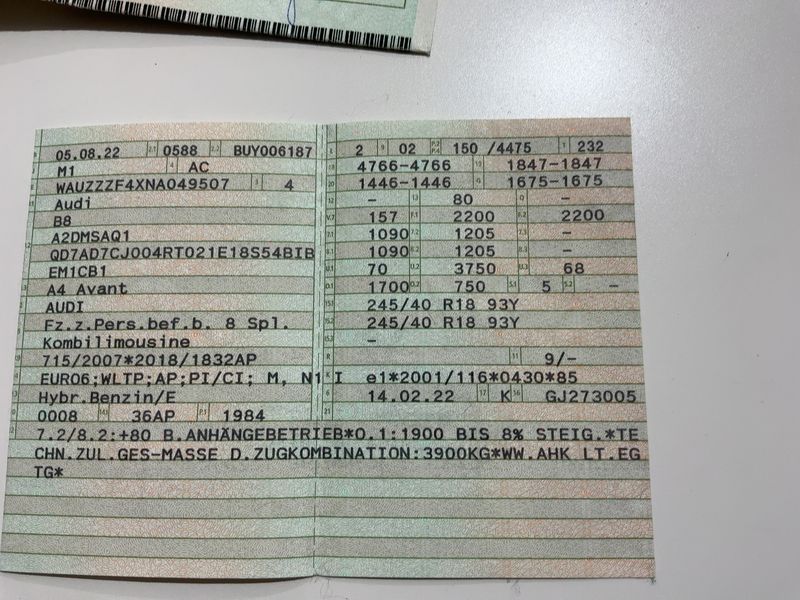 05.08.22 0588 BUY006187 2 02 150 /4475 232
M1 AC 4766-4766 1847-1847
WAUZZZF4XNA049507 4 1446-1446 1675-1675
Audi - 80 -
B8 157 2200 2200
A2DMSAQ1 1090 1205 -
QD7AD7CJ004RT021E18S54BIB 1090 1205 -
EM1CB1 70 3750 68
A4 Avant 1700 750 5 -
AUDI 245/40 R18 93Y
Fz.z.Pers.bef.b. 8 Spl. 245/40 R18 93Y
Kombilimousine -
715/2007*2018/1832AP 9/-
EURO6;WLTP;AP;PI/CI; M, N1 I e1*2001/116*0430*85
Hybr.Benzin/E 14.02.22 K GJ273005
0008 36AP 1984
7.2/8.2:+80 B.ANHÄNGEBETRIEB*O.1:1900 BIS 8% STEIG.*TE
CHN.ZUL.GES-MASSE D.ZUGKOMBINATION:3900KG*WW.AHK LT.EG
TG*